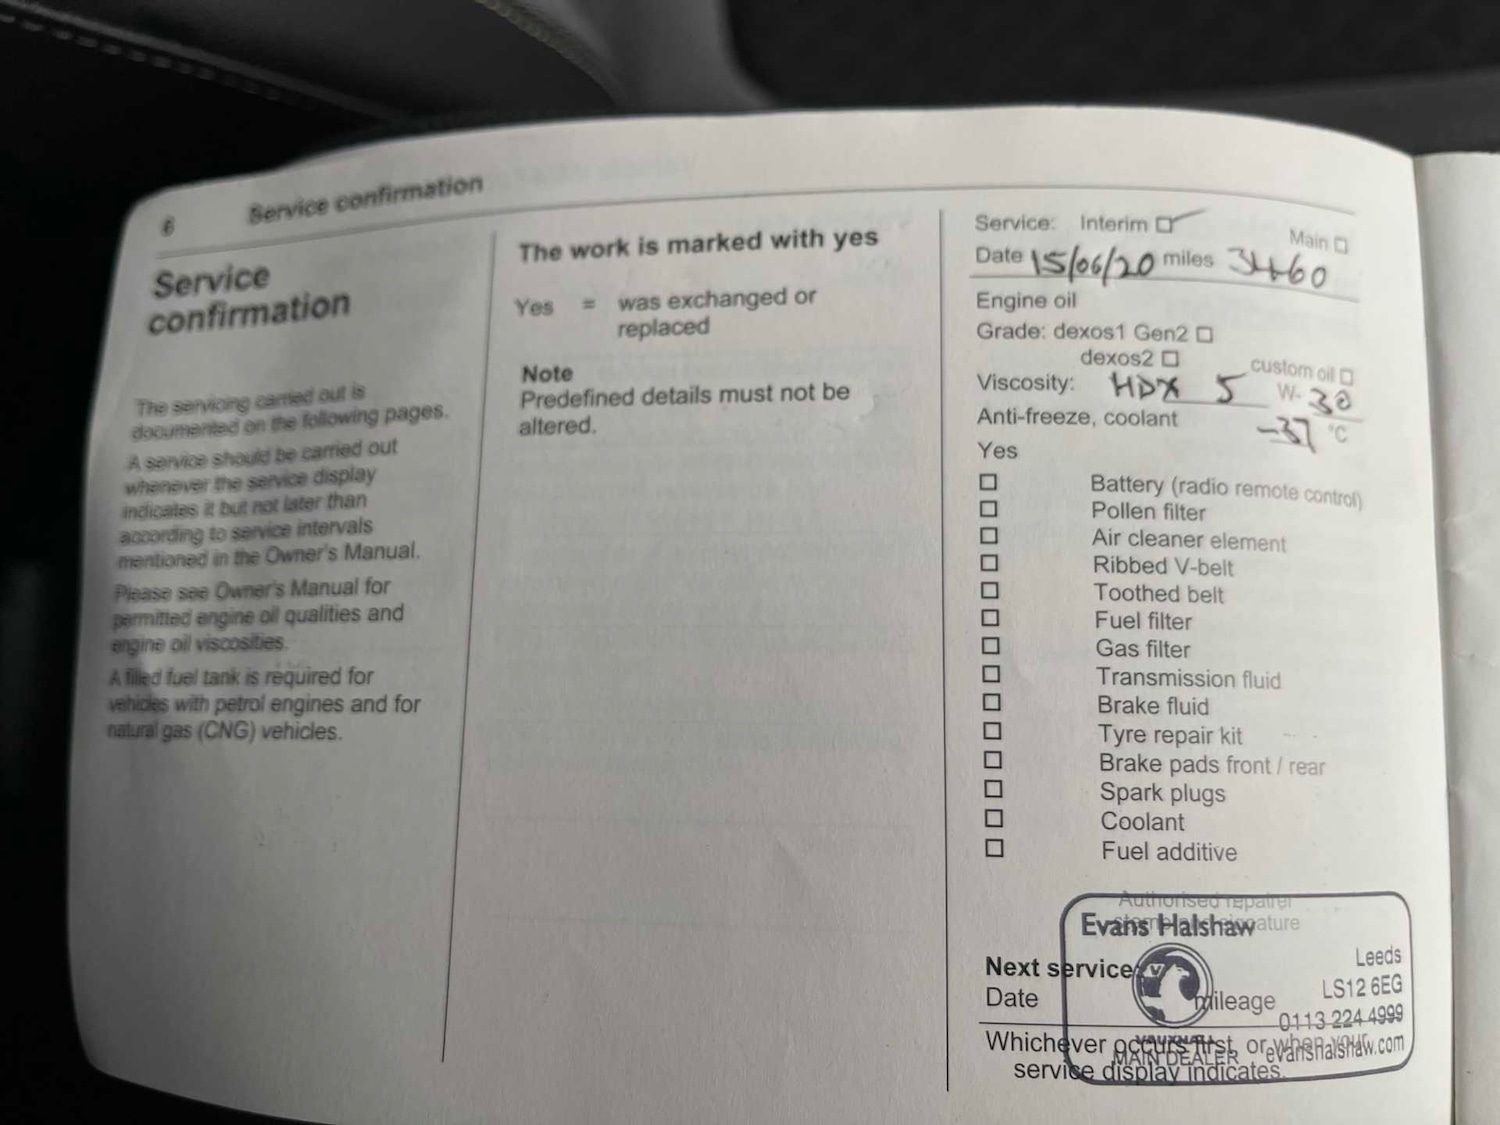 6 Service confirmation
Service
confirmation
The servicing carried out is
documented on the following pages.
A service should be carried out
whenever the service display
indicates it but not later than
according to service intervals
mentioned in the Owner's Manual.
Please see Owner's Manual for
permitted engine oil qualities and
engine oil viscosities.
A filled fuel tank is required for
vehicles with petrol engines and for
natural gas (CNG) vehicles.
The work is marked with yes
Yes = was exchanged or
replaced
Note
Predefined details must not be
altered.
Service: Interim Main
Date 15/06/20 miles 34460
Engine oil
Grade: dexos1 Gen2
dexos2 custom oil
Viscosity: HDX 5 W- 30
Anti-freeze, coolant -37 °C
Yes
Battery (radio remote control)
Pollen filter
Air cleaner element
Ribbed V-belt
Toothed belt
Fuel filter
Gas filter
Transmission fluid
Brake fluid
Tyre repair kit
Brake pads front / rear
Spark plugs
Coolant
Fuel additive
Authorised repairer
stamp and signature
Evans Halshaw
Leeds
LS12 6EG
0113 224 4999
evanshalshaw.com
VAUXHALL
MAIN DEALER
Next service
Date mileage
Whichever occurs first, or when your
service display indicates.